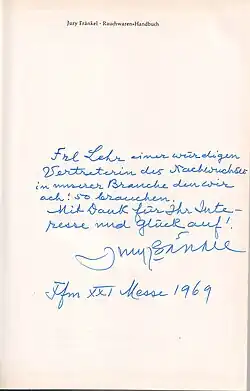 Jury Fränkel - Rauchwaren-Handbuch
Frl Lehr einer würdigen
Vertreterin des Nachwuchses
in unserer Branche den wir
ach! so brauchen.
Mit Dank für Ihr Inte-
resse und Glück auf!
Jury Fränkel
Ffm XXI Messe 1969